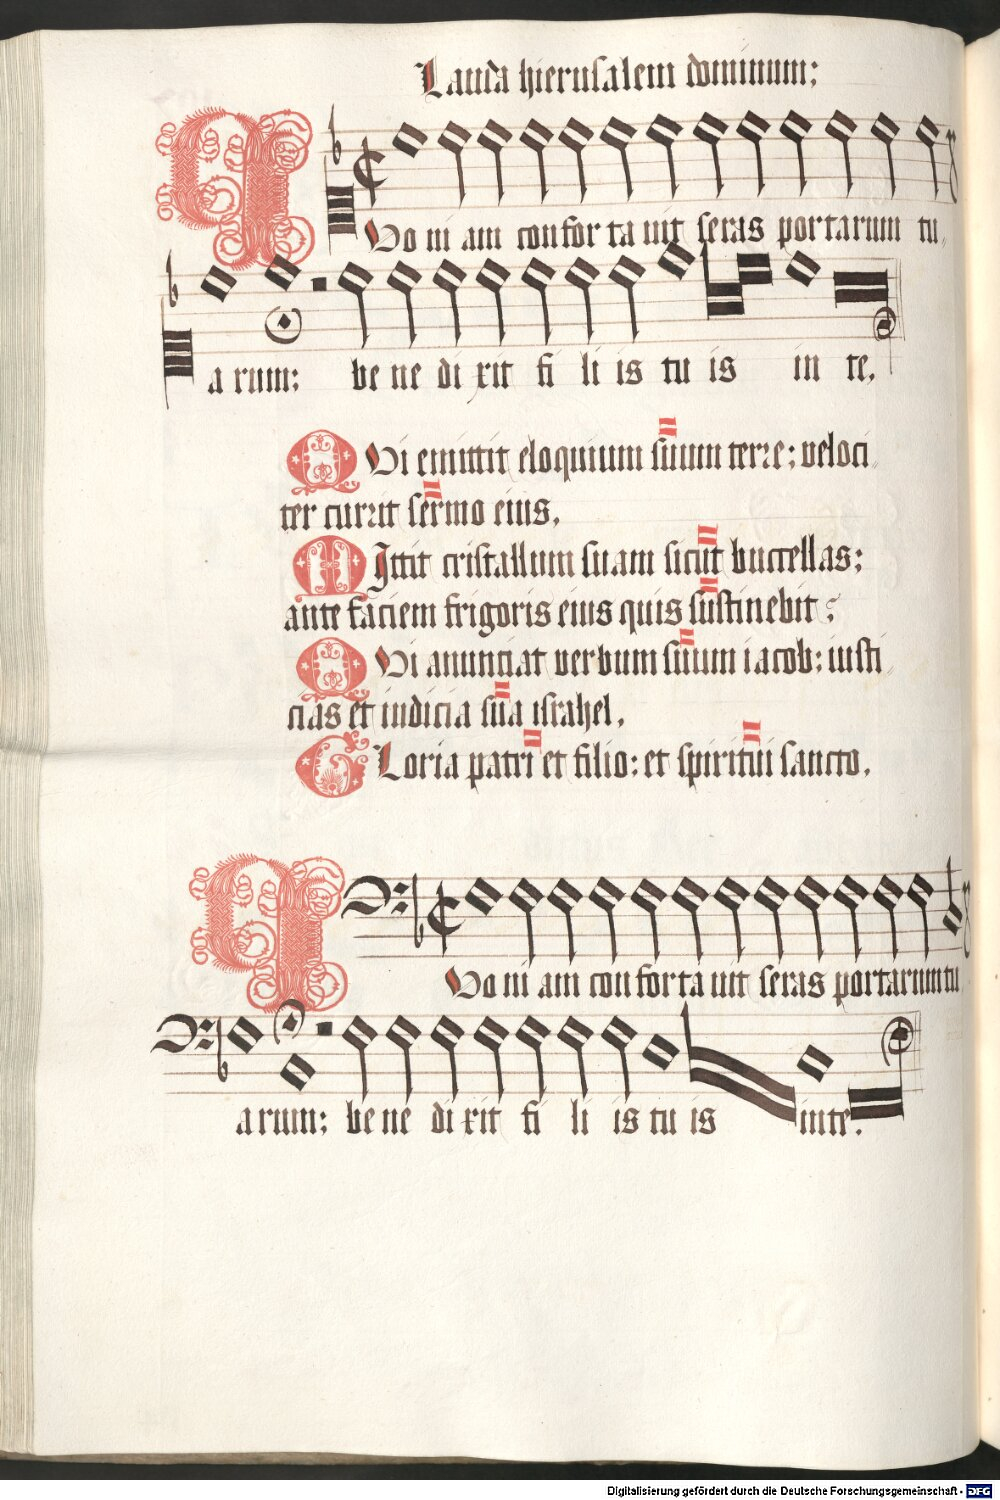 Lauda hierusalem dominum:
Quo ni am con for ta uit seras portarum tu
a rum: be ne di xit fi li is tu is in te.
Qui emittit eloquium suum terre: veloci
ter currit sermo eius.
Mittit cristallum suam sicut buccellas:
ante faciem frigoris eius quis sustinebit?
Qui anunciat verbum suum iacob: iusti
cias et iudicia sua israhel.
Gloria patri et filio: et spiritui sancto.
Quo ni am con for ta uit seras portarum tu
a rum: be ne di xit fi li is tu is in te.
Digitalisierung gefördert durch die Deutsche Forschungsgemeinschaft - DFG